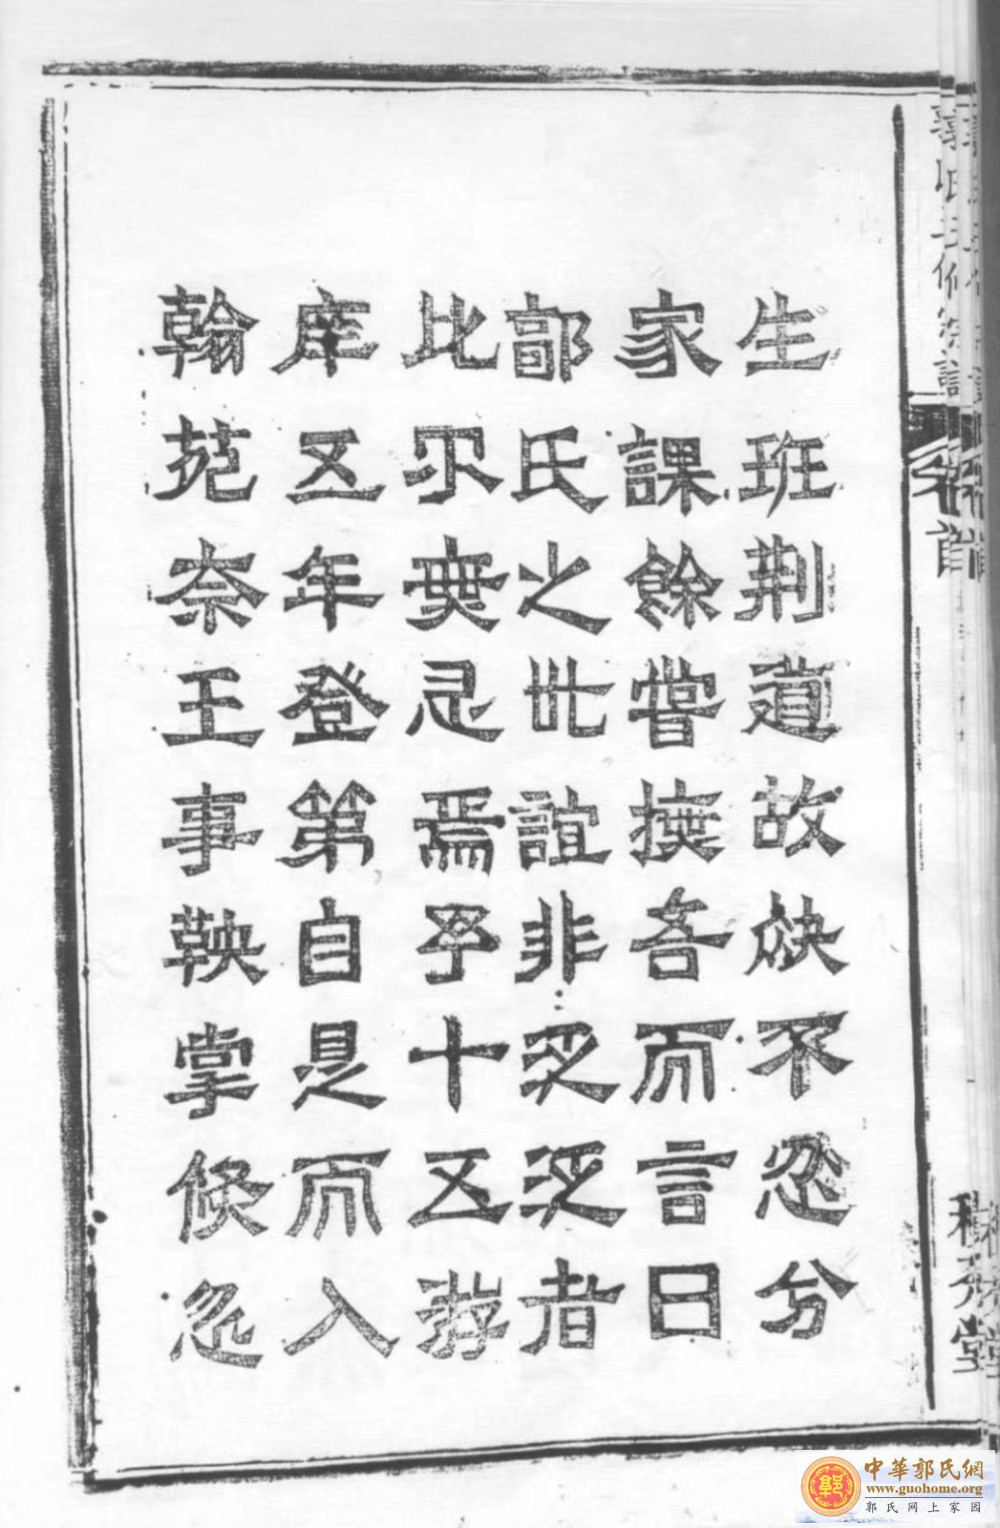 生班荆道故不忍分
家課餘嘗撫吾而言曰
郭氏之世誼非泛泛者
比尔無忘焉予十五游
庠五年登第自是而入
翰苑奈王事鞅掌倏忽
卷首
中華郭氏網
www.guohome.org
郭氏网上家园